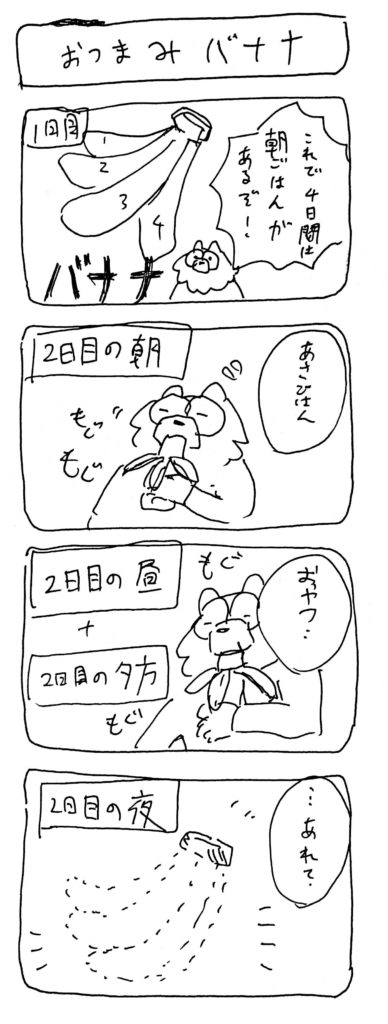 おつまみバナナ
1日目
これで4日間は
朝ごはんが
あるぞ!
1
2
3
4
バナナ
2日目の朝
あさごはん
もぐ
もぐ
2日目の昼
+
2日目の夕方
おやつ…
もぐ
もぐ
2日目の夜
…あれて.